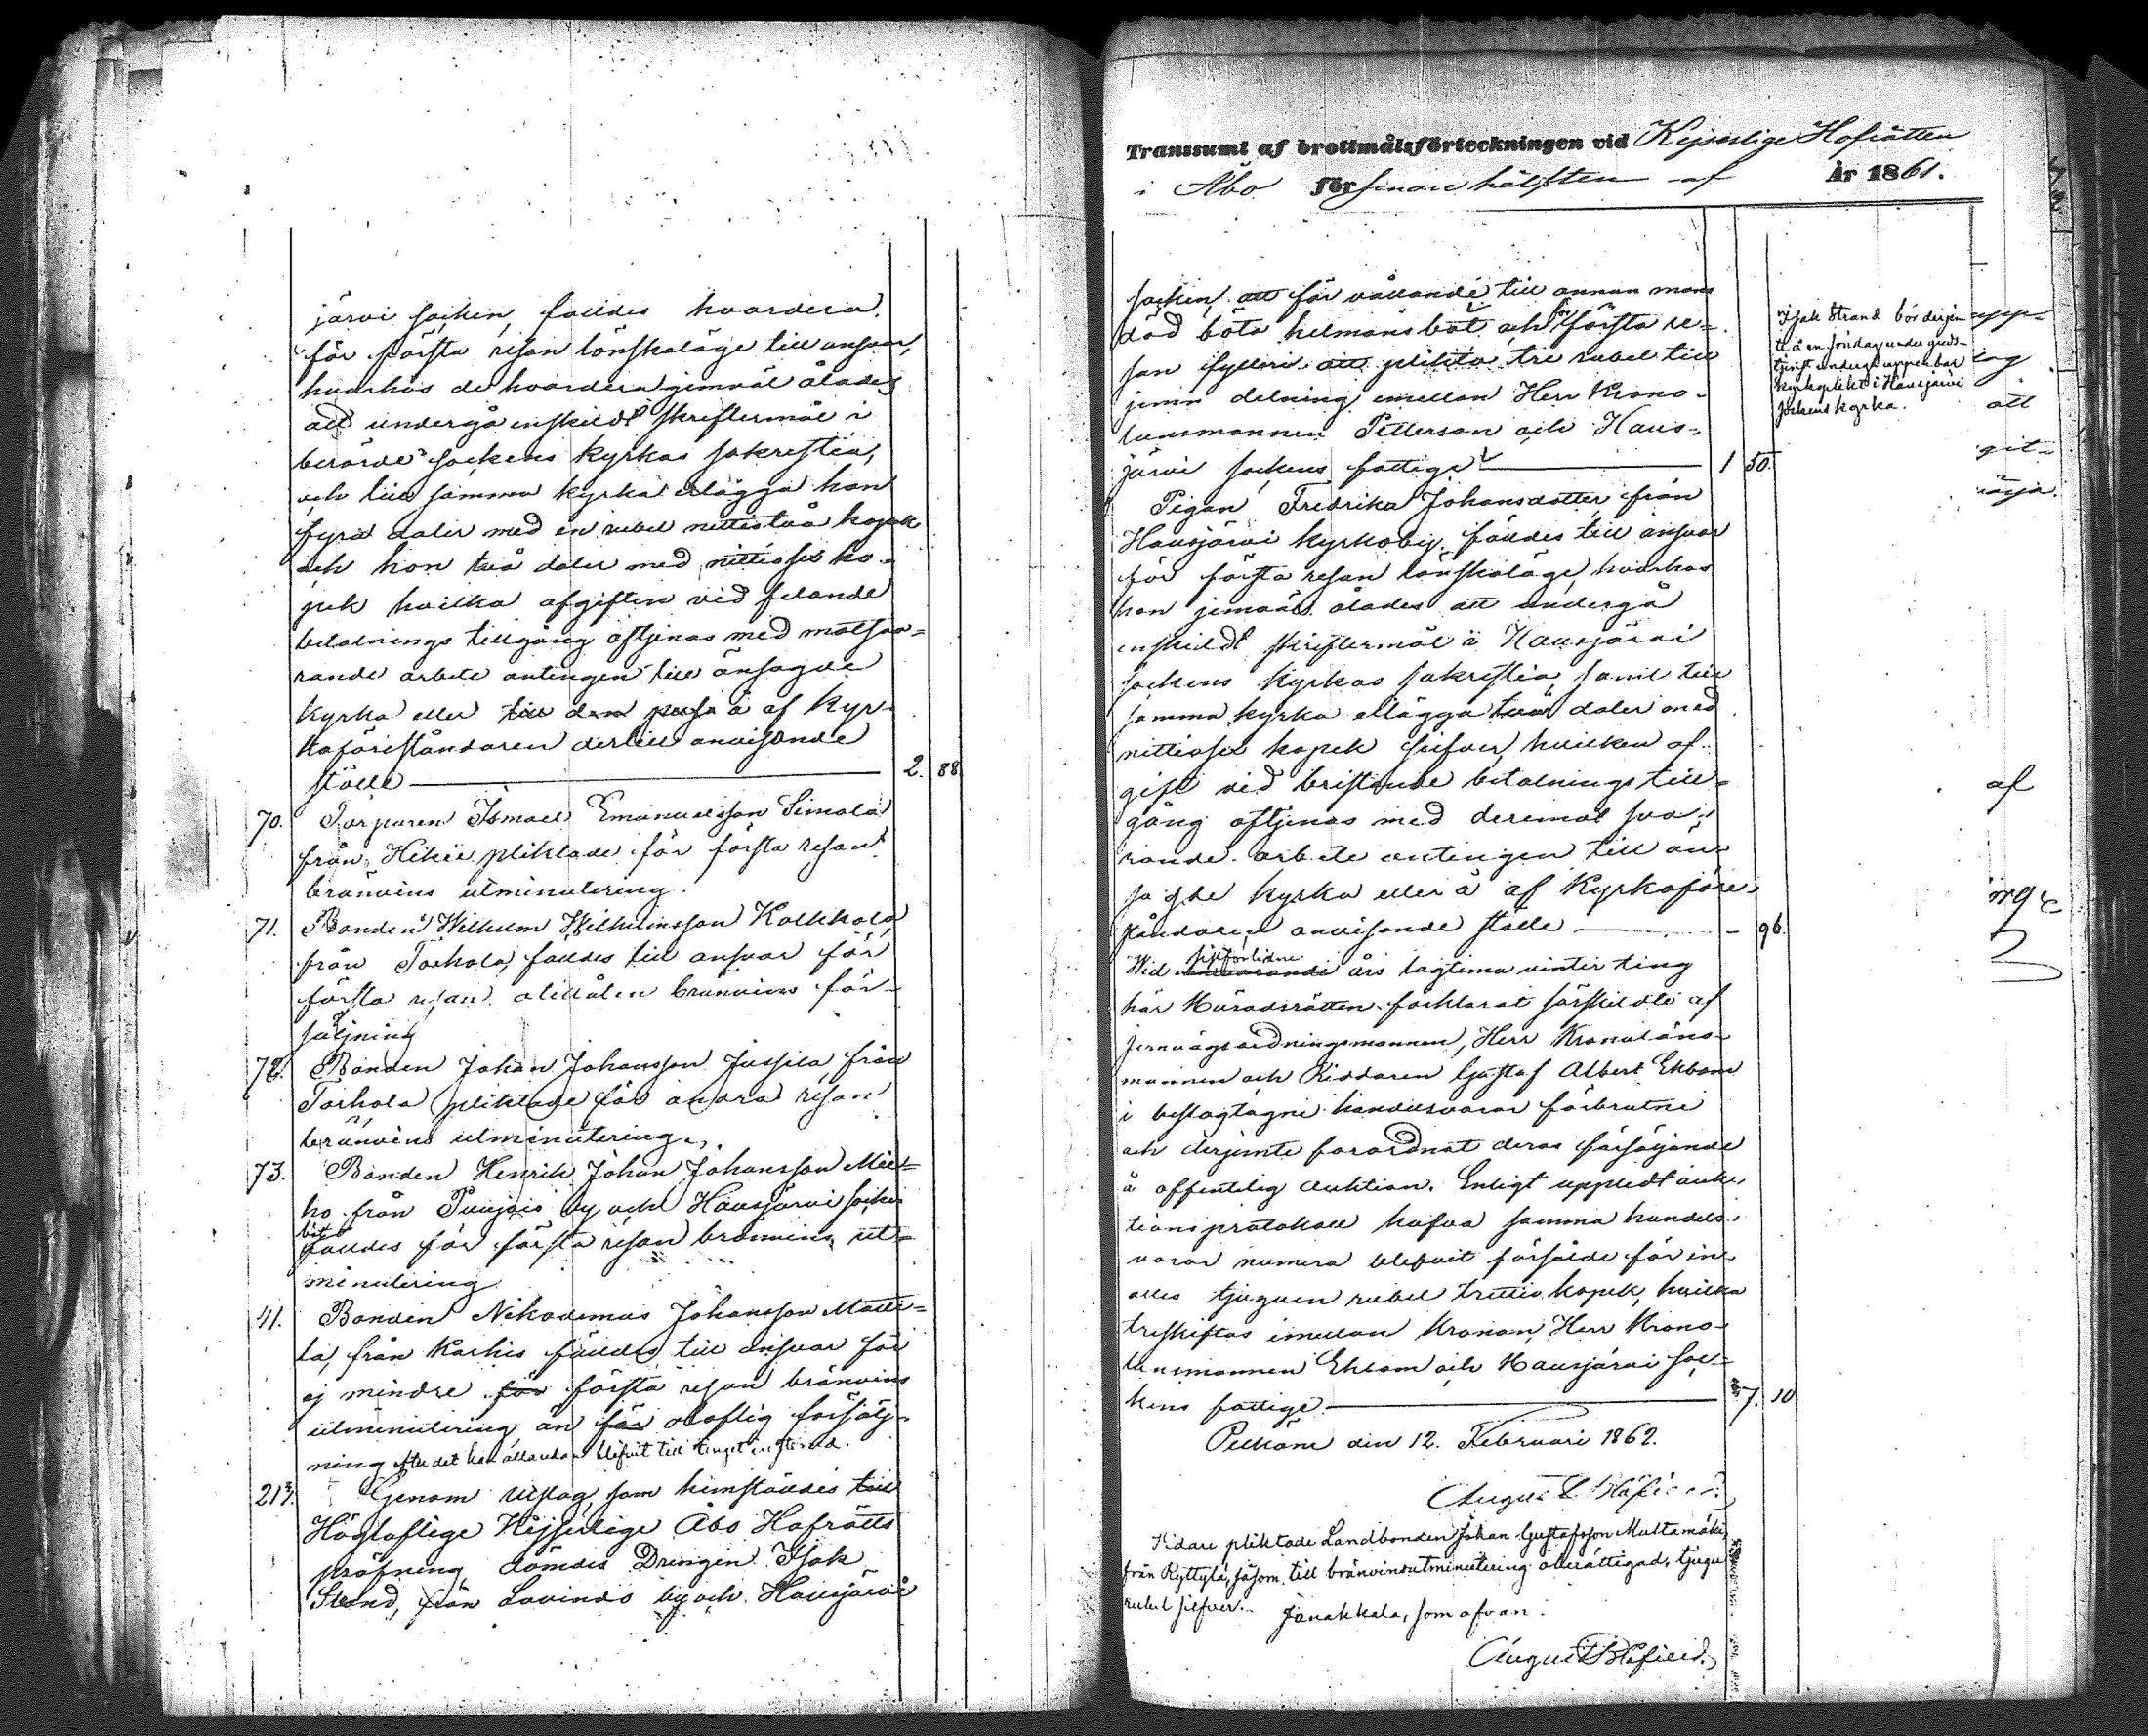 järvi socken, fälldes hvardera
för första resan lönskaläge till ansvar,
hvarhos de hvardera jemväl ålades
att undergå enskildt skriftermål i
berörde sockens kyrkas sakristia,
och till samma kyrka erlägga han
fyra daler med en rubel nittiotvå kopek
och hon två daler med nittiosex ko-
pek hvilka afgifter vid felande
betalnings tillgång aftjenas med motsva-
rande arbete antingen till änsagde
kyrka eller till den å af kyr-
koföreståndaren dertill anvisande
ställe 2. 88
70. Torparen Ismael Emanuelsson Simola
från Hikiä pliktade för första resan
bränvins utminutering.
71. Bonden Wilhelm Wilhelmsson Kolkkala
från Torhola, fälldes till ansvar för
första resan olofliga bränvins för-
säljning
72. Bonden Johan Johansson Jussila från
Torhola pliktade för andra resan
bränvins utminutering.
73. Bonden Henrik Johan Johansson
ho från Puujais by och Hausjärvi socken
böt
fälldes för första resan bränvins ut-
minutering
41. Bonden Nikodemus Johansson Matti-
la, från Karhis fälldes till ansvar för
ej mindre för första resan bränvins
utminutering än för oloflig försälj-
ning efter det han blifvit till tinget instämd.
213. Genom utslag, som hemställdes till
Högloflige Kejserlige Åbo Hofrätts
pröfning, dömdes Drengen Isak
Strand, från Lavindo by och Hausjärvi
Transsumt af brottmålsförteckningen vid Kejserlige Hofrätten
i Åbo för senare hälften af År 1861.
socken, att för vållande till annan mans
död böta helmansbot och för första re-
san fylleri att plikta tre rubel till
jemn delning emellan Herr Krono-
länsmannen Petterson och Haus-
järvi sockens fattige 1 50.
Isak Strand bör derjem-
te å en söndag under guds-
tjenst undergå uppenbar
kyrkoplikt i Hausjärvi
sockens kyrka.
Pigan Fredrika Johansdotter från
Hausjärvi kyrkoby fälldes till ansvar
för första resan lönskaläge, hvarhos
hon jemväl ålades att undergå
enskildt skriftermål i Hausjärvi
sockens kyrkas sakristia samt till
samma kyrka erlägga två daler med
nittiosex kopek silfver, hvilken af-
gift vid bristande betalnings till-
gång aftjenas med deremot sva-
rande arbete antingen till än-
sagde kyrka eller å af Kyrkoföre-
ståndaren anvisande ställe - 96.
sistförlidne
Wid års lagtima vinter ting
här Häradsrätten förklarat särskildte af
jernvägsordningsmannen, Herr Kronoläns-
mannen och Riddaren Gustaf Albert Ekbom
i beslagtagne handelsvaror förbrutne
och derjemte förordnat deras försäljande
å offentelig auktion. Enligt uppledt auk-
tionsprotokoll hafva samma handels-
varor numera blefvit försålde för in-
alles tjuguen rubel trettio kopek, hvilka
treskiftas imellan Kronan, Herr Krono-
länsmannen Ekbom och Hausjärvi soc-
kens fattige 7. 10
Pelkäne den 12. Februari 1862.
August Blåfield.
Vidare pliktade Landbonden Johan Gustafsson Multamäki
från Ryttylä, såsom till bränvinsutminutering oberättigad, tjugu
rubel silfver.
Janakkala, som ofvan.
August Blåfield.
upp-
lag
att
git-
af